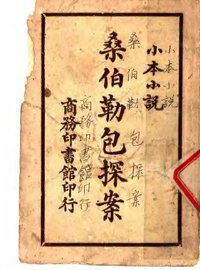 小本小説
小本小説
桑伯勒包探案
桑伯勒包探案
商務印書館印行
商務印書館印行